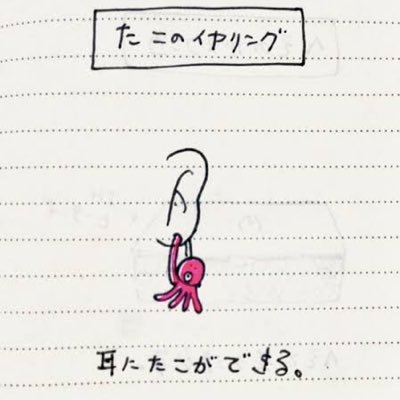 たこのイヤリング
耳にたこができる。